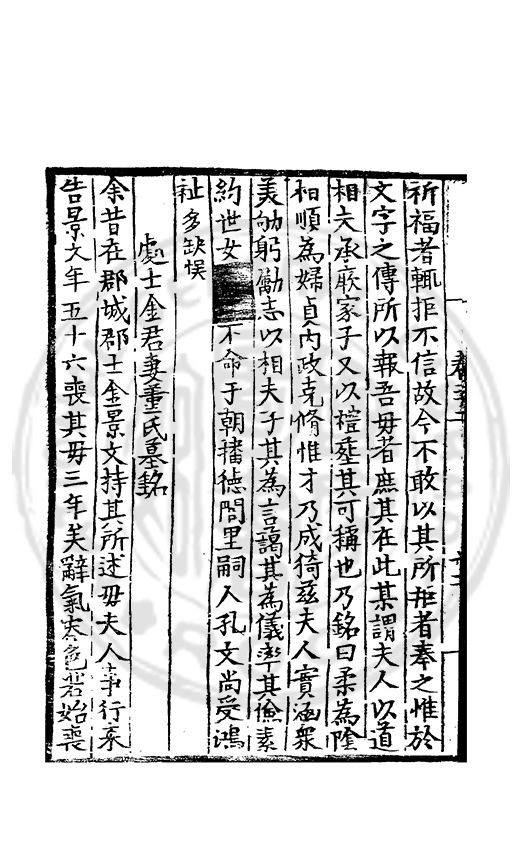 祈福者輒拒不信故今不敢以其所拒者奉之惟於
文字之傳所以報吾母者庶其在此某謂夫人以道
相夫承厥家子又以禮塟其可稱也乃銘曰柔為隂
相順為婦貞内政克脩惟才乃成猗兹夫人實涵衆
美劬躬勵志以相夫子其為言藹其為儀率其儉素
約世女不命于朝播德閭里嗣人孔文尚受鴻
祉多缺悞
處士金君妻董氏墓銘
余昔在郡城郡士金景文持其所述母夫人事行來
告景文年五十六喪其母三年矣辭氣容色若始喪